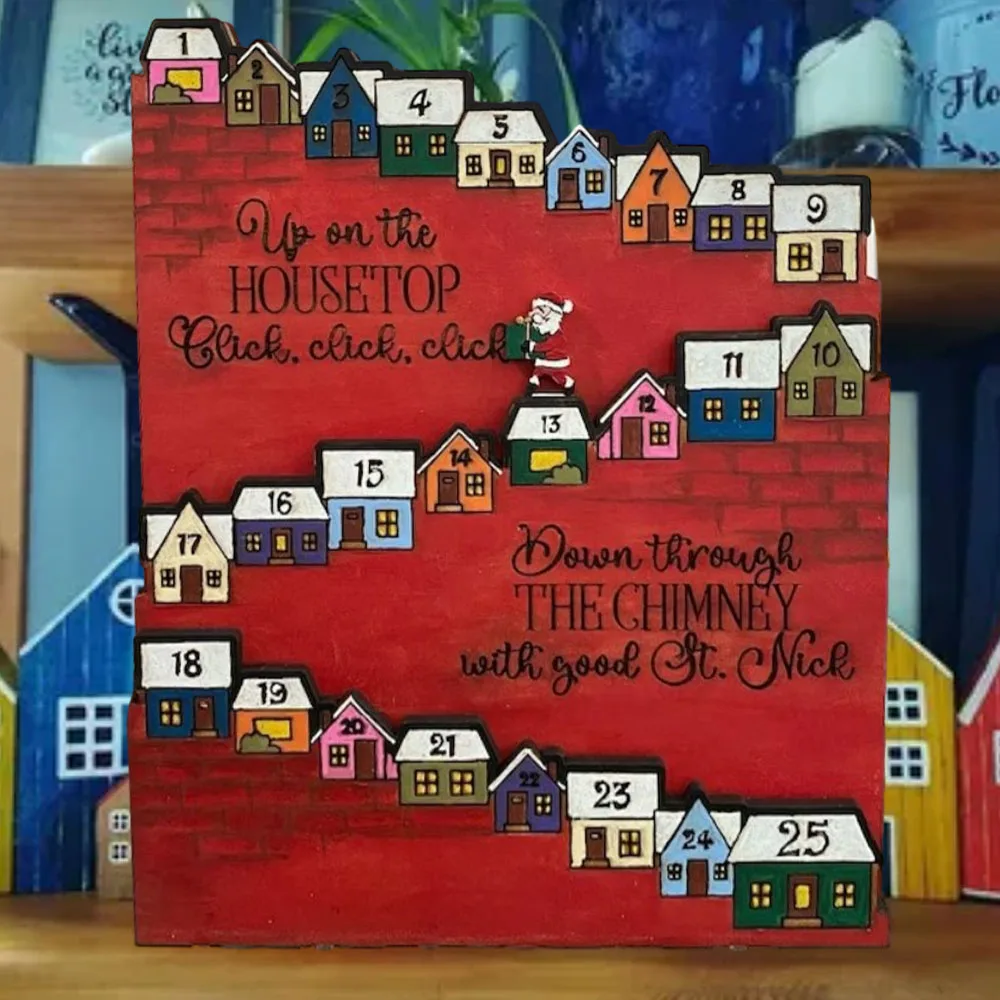 1
2
3
4
5
6
7
8
9
Up on the
HOUSETOP
Click, click, click
11
10
12
13
14
15
16
17
Down through
THE CHIMNEY
with good St. Nick
18
19
20
21
22
23
24
25
Flo